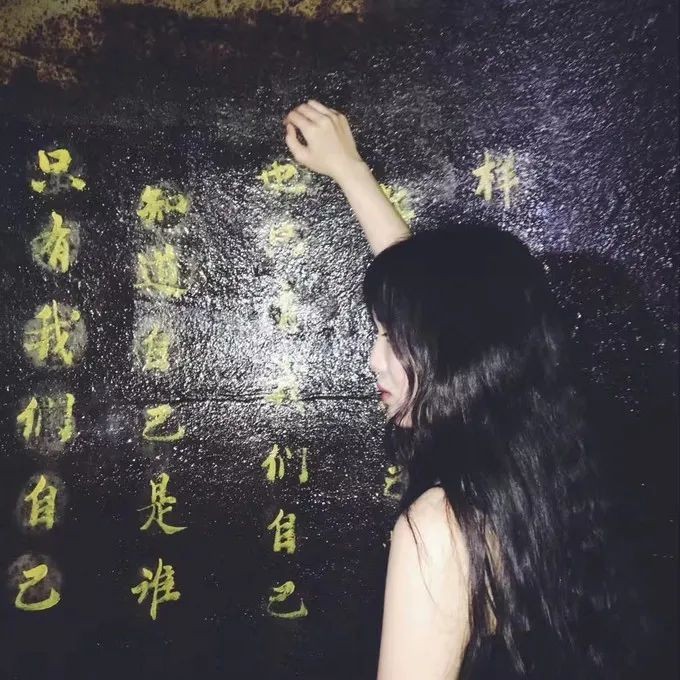 只有我们自己
知道自己是谁
也只有我们自己
样